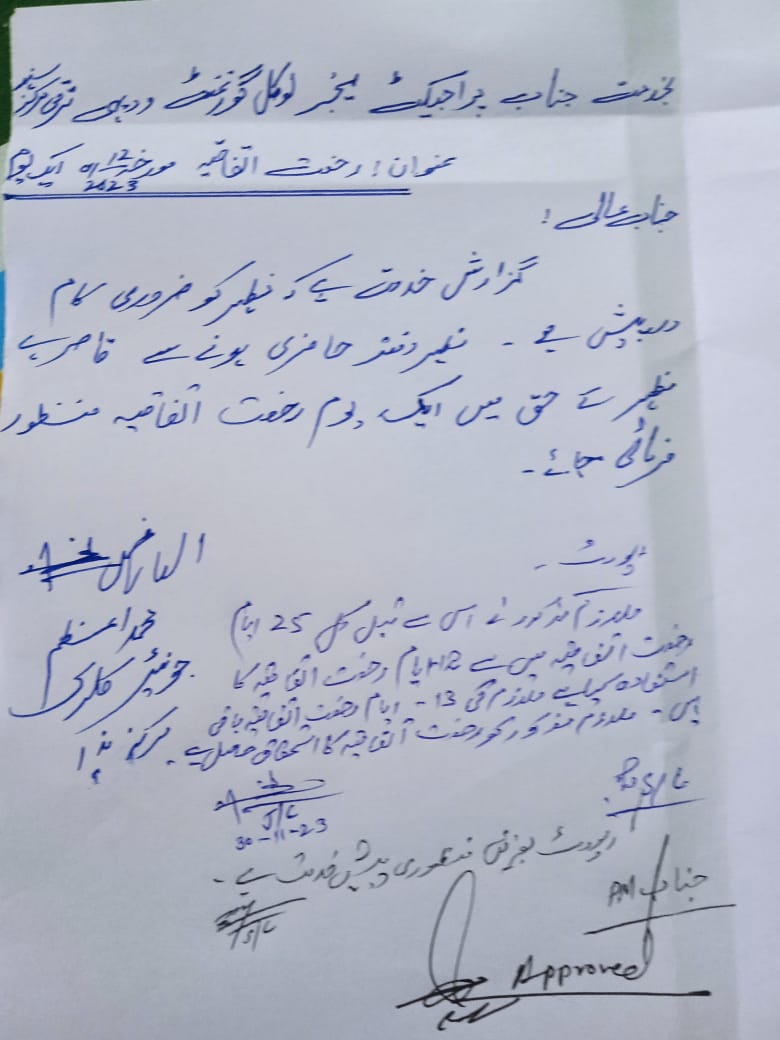 بخدمت جناب پراجیکٹ منیجر لوکل گورنمنٹ و دیہی ترقی مرکز
عنوان: رخصت اتفاقیہ مورخہ 01/12/2023 ایک یوم
جناب عالی!
گزارش خدمت ہے کہ مظہر کو ضروری کام
درپیش ہے۔ مظہر دفتر حاضری ہونے سے قاصر ہے
مظہر کے حق میں ایک یوم رخصت اتفاقیہ منظور
فرمائی جائے۔
العارض
محمد اعظم
جونیئر کلرک
مرکز ہذا
رپورٹ۔
ملازم مذکور نے اس سے قبل کل 25 ایام
رخصت اتفاقیہ میں سے 12 ایام رخصت اتفاقیہ کا
استفادہ کیا ہے ملازم کی 13۔ ایام رخصت اتفاقیہ باقی
ہیں۔ ملازم مذکور کو رخصت اتفاقیہ کا استحقاق حاصل ہے۔
J/C
30-11-23
S/C
رپورٹ بغرض منظوری پیش خدمت ہے۔
S/C
جناب PM
Approved